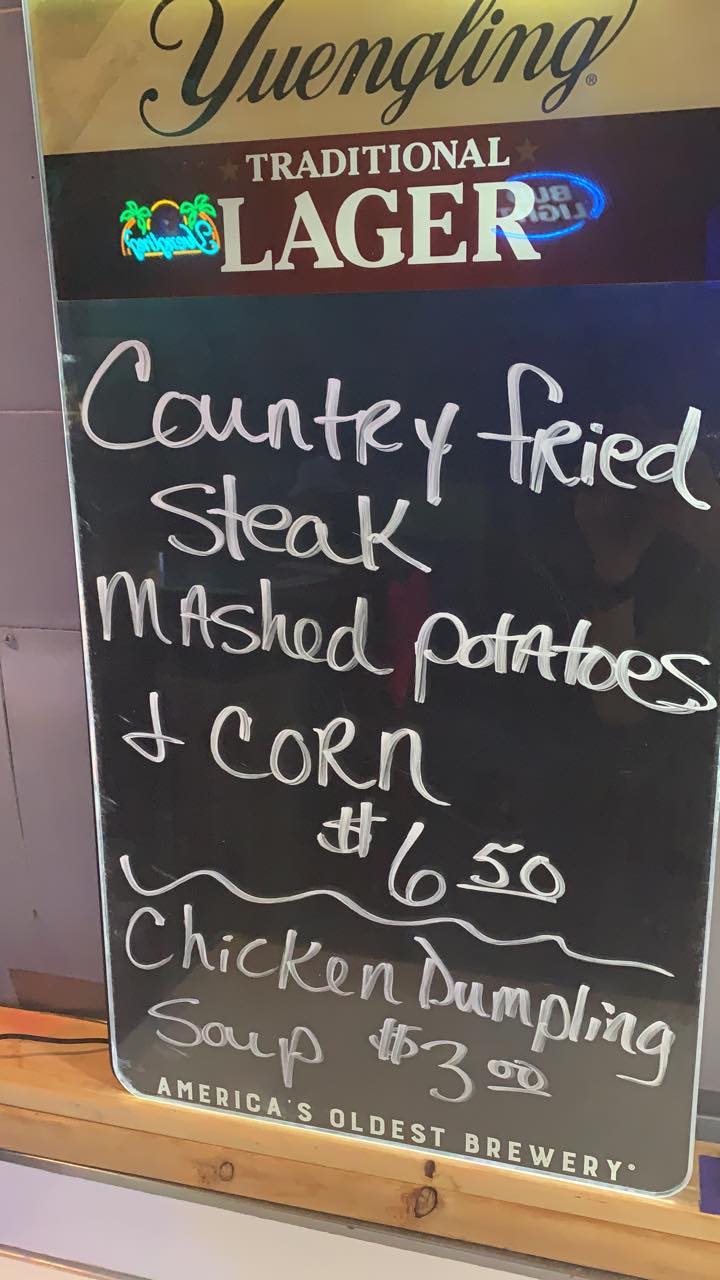 Yuengling®
TRADITIONAL
LAGER
Yuengling
BUD
LIGHT
Country fried
Steak
MAshed potAtoes
& CORN
$6.50
Chicken Dumpling
Soup $3.00
AMERICA'S OLDEST BREWERY®